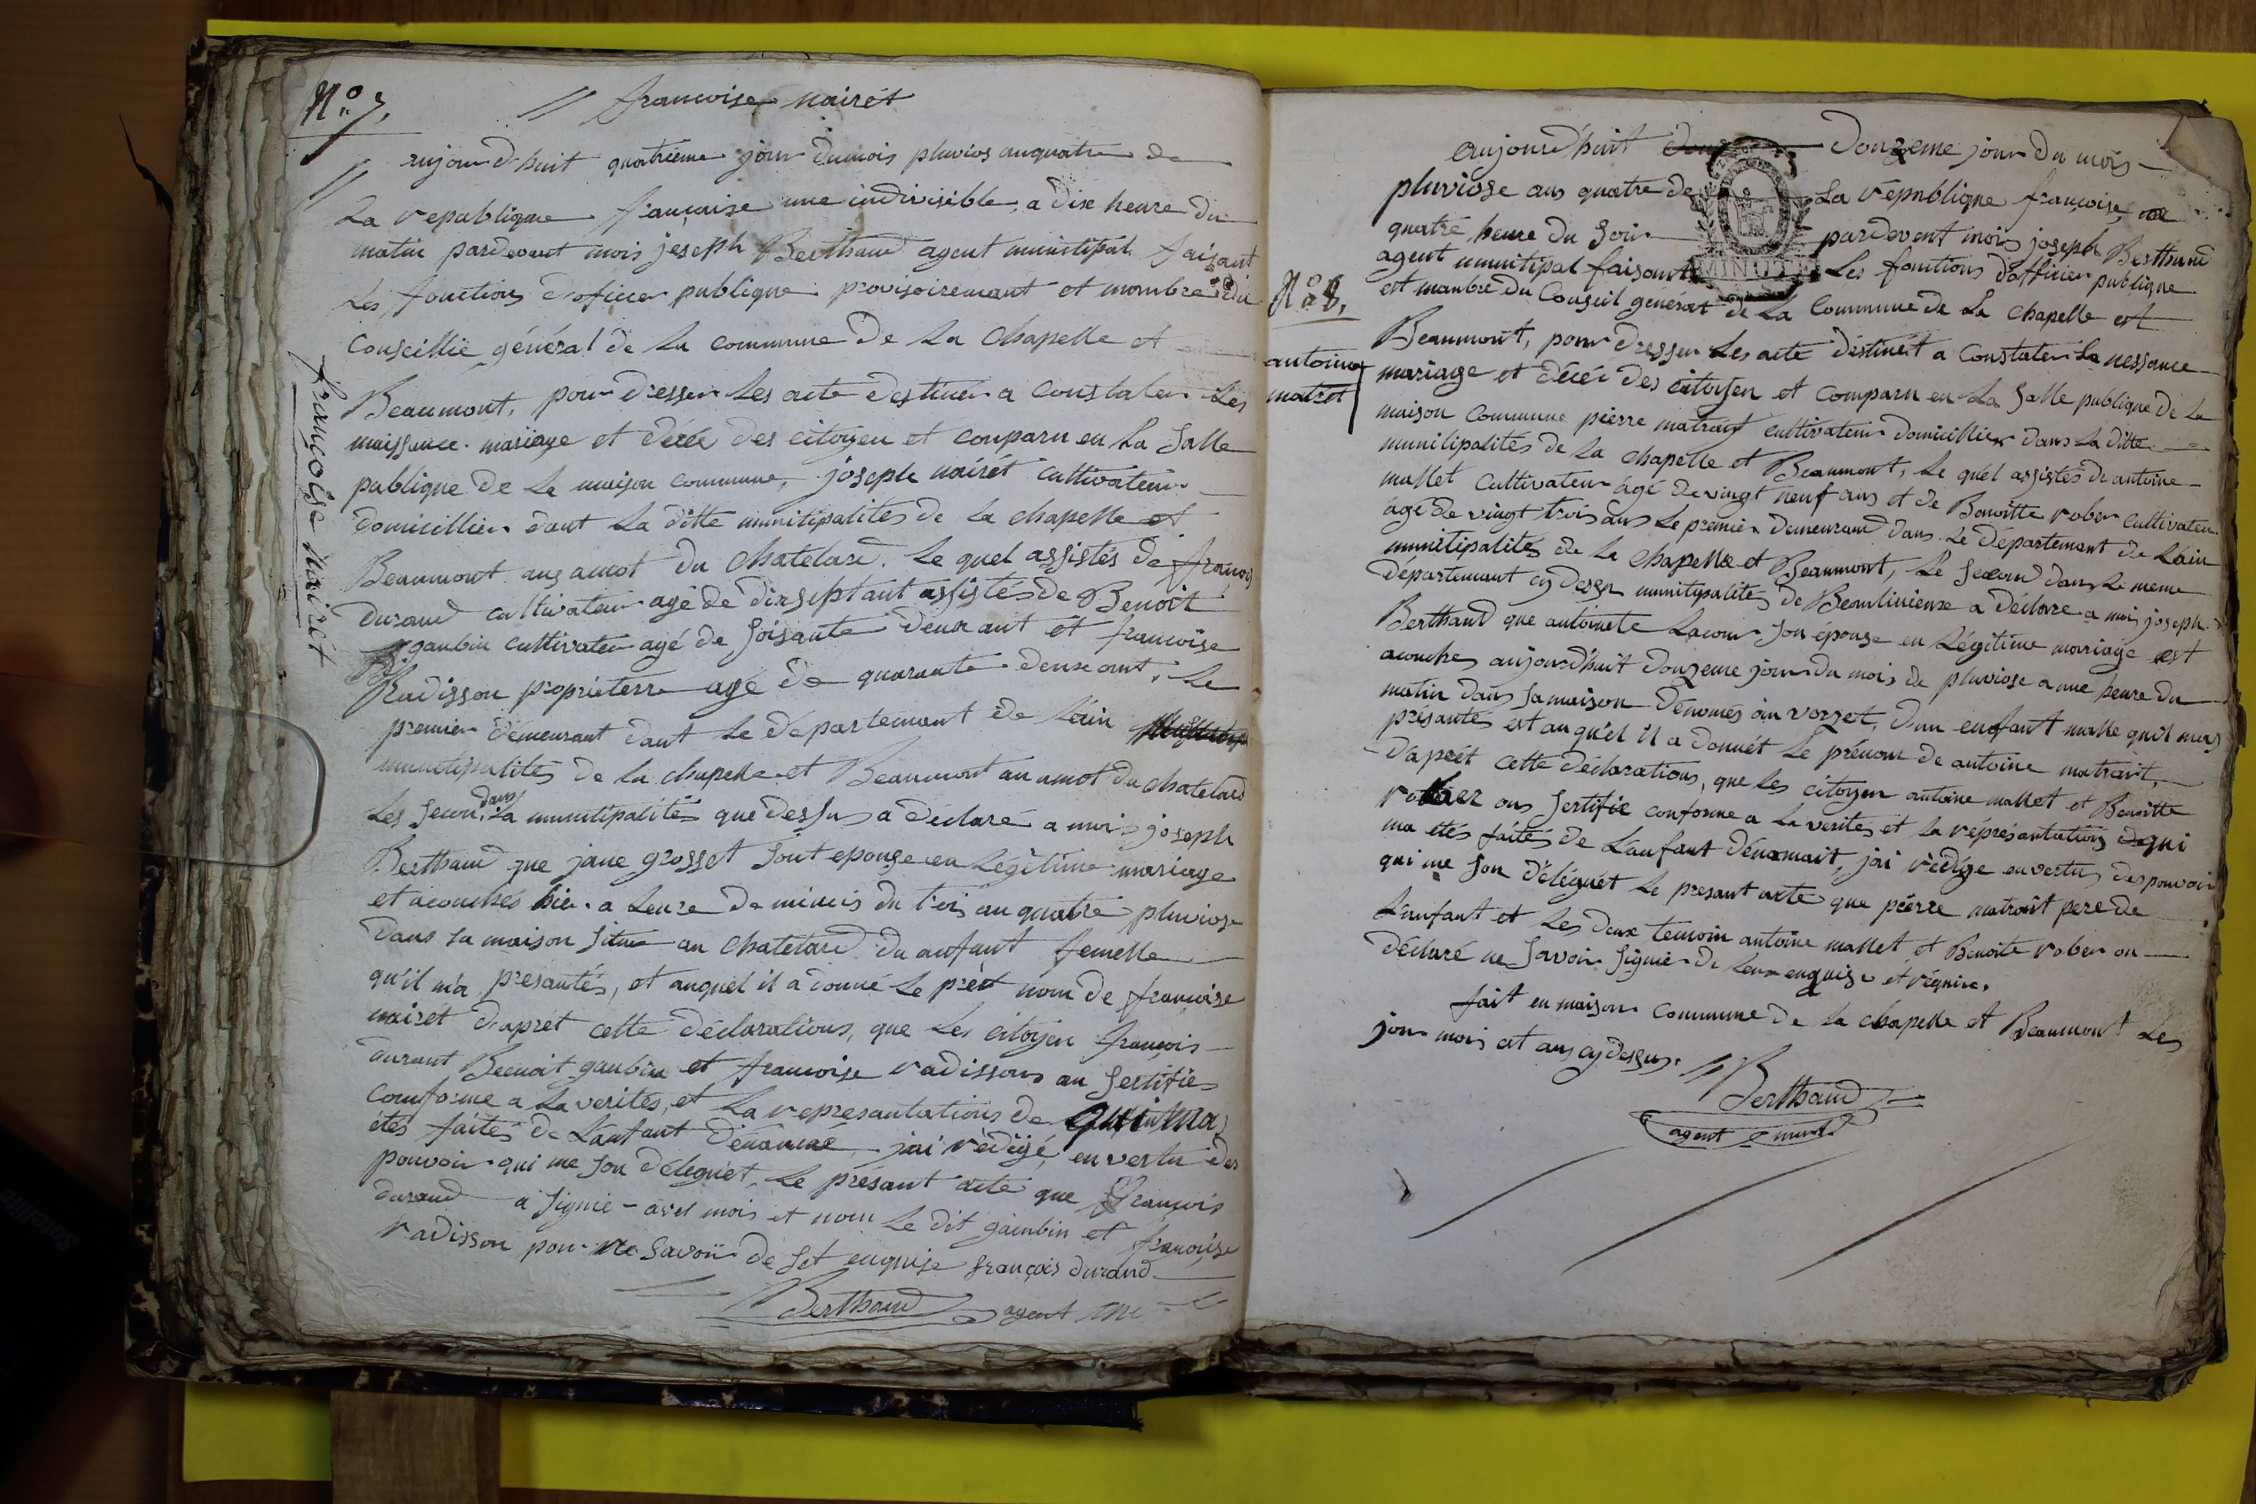 N° 7.
// francoise nairét
// aujourd'huit quatriéme jour dumois pluvios anquatre de
La republique française une indivisible, a dixe heure du
matin pardevant mois jeseph Berthaud agent municipal faisant
Les fonctions d'oficier publique provisoirement et mombre du
Conseillie général de La commune de La Chapelle et
Beaumont, pour dresser Les acte destiner a constater Les
naissance mariage et décée des citoyen et conparu en La Salle
publique de La maison commune, joseph nairét cultivateur
domicillier dant La ditte munitipalités de La chapelle et
Beaumont aux amot du chatelard. Le quel assistés de françois
durand cultivateur agé de dixseptant assistésde Benoit
gaubin cultivateur agé de soisante deux ant et francoise
Radisson propriéterre agé de quarante deuxe ant, Le
premier demeurant dant Le departemant de Lain
munitipalités de La chapelle et Beaumont au amot du chatelard
Les secon, dans La munitipalités que dessus a déclaré a mois joseph
Berthaud que jane grosset sont epouse en Légitime mariage
et acouchés hier a Leure de minuis du trois an quatre pluviose
dans sa maison situe au chatelard du anfant femelle
qu'il m'a presantés, et auquel il a donné Le prét nom de francoise
nairet d'apret cette déclarations, que Les citoyen françois
durant Benoit gaubin et francoise radissons on sertifiés
comforme a La verités, et La represantations de qui ma
étés faités de L'anfant dénomme, jai rédigé, en vertu des
pouvoir qui me son déléguét, Le présant acte que françois
durand a signié - avet mois et nom Le dit gaimbin et francoise
radisson pour ne Savoir de set enquise françois durand
Berthaud agent
francoise nairét
aujourd'huit Douzeme jour du mois
pluviose ans quatre de La républigne françoise
quatre heure du soir pardevent mois joseph Berthaud
agent munitipal faisant Les fonctions d'officier publique
MINUTE
N° 8.
antoine
matret
et manbre du Conseil general de La Commune de La Chapelle et
Beaumont, pour dresser Les acte déstinét a Constater La nessance
mariage et décér des citoyen et comparu en La Salle publique de La
maison Commune piérre matrait cultivateur domicillier dans La ditte
munilipalités de La chapelle et Beaumont, Le quél assistés de antoine
mallet Cultivateur âgé devingt neuf ans et de Benoitte rober Cultivateur
âgé de vingt trois ans Le premier demeurand dans Le departemant de Lain
munitipalités de La chapelle et Beaumont, Le second dans Le meme
département cy desu munitypalités de Beaulinienze a déclare a mois joseph
Berthaud que antoinete Lacour son épouse en Légitime mariage est
acouches aujourd'huit Douzeme jour du mois de pluviose a une heure du
matin dans samaison dénomés au vorzet, d'un enffant malle qu'il ma
présantés et auquél il a donnét Le prénom de antoine matrait,
d'aprét cette déclarations, que Les citoyen antoine mallet et Benoitte
robaer ons sertifié conforme a La verités et La réprésantations qui
ma étés faités de L'anfant dénomait, j'ai rédige envertu des pouvoir
qui me son déléguét Le presant acte que piérre matrait pere de
L'anfant et Les deux temoin antoine mallet et Benoite rober on
déclaré ne savoir signié de leur enquise et réquire.
fait en maison Commune de La chapelle et Beaumont Les
jour mois et ans cy dessus.
Berthaud
agent